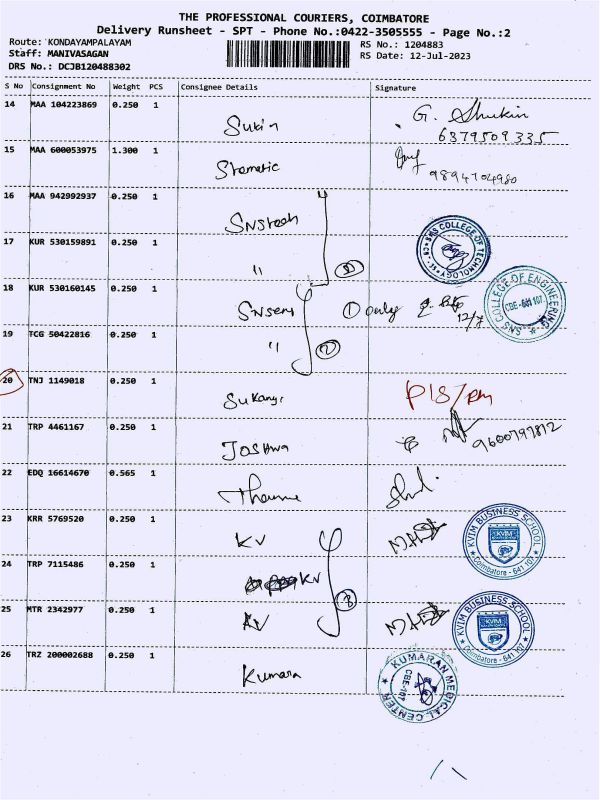 THE PROFESSIONAL COURIERS, COIMBATORE
Delivery Runsheet - SPT - Phone No.:0422-3505555 - Page No.:2
Route: KONDAYAMPALAYAM RS No.: 1204883
Staff: MANIVASAGAN RS Date: 12-Jul-2023
DRS No.: DCJB120488302
S No Consignment No Weight PCS Consignee Details Signature
14 MAA 104223869 0.250 1 Sukin G. Shukin
6379509335
15 MAA 600053975 1.300 1 Stematic
9894704980
16 MAA 942992937 0.250 1 SNStech
SNS COLLEGE OF TECHNOLOGY
17 KUR 530159891 0.250 1 "
18 KUR 530160145 0.250 1 SNSens ① only 12/7
SNS COLLEGE OF ENGINEERING CBE-641 107
19 TCG 50422816 0.250 1 " ②
20 TNJ 1149018 0.250 1 Sukanyi
21 TRP 4461167 0.250 1 Joshwa 9600797812
22 EDQ 16614670 0.565 1
23 KRR 5769520 0.250 1 KV
KVIM BUSINESS SCHOOL KVIM Coimbatore - 641 107
24 TRP 7115486 0.250 1 KV ③
25 MTR 2342977 0.250 1 KV
KVIM BUSINESS SCHOOL KVIM Coimbatore - 641 107
26 TRZ 200002688 0.250 1 Kumara
KUMARAN MEDICAL CENTER CBE-107